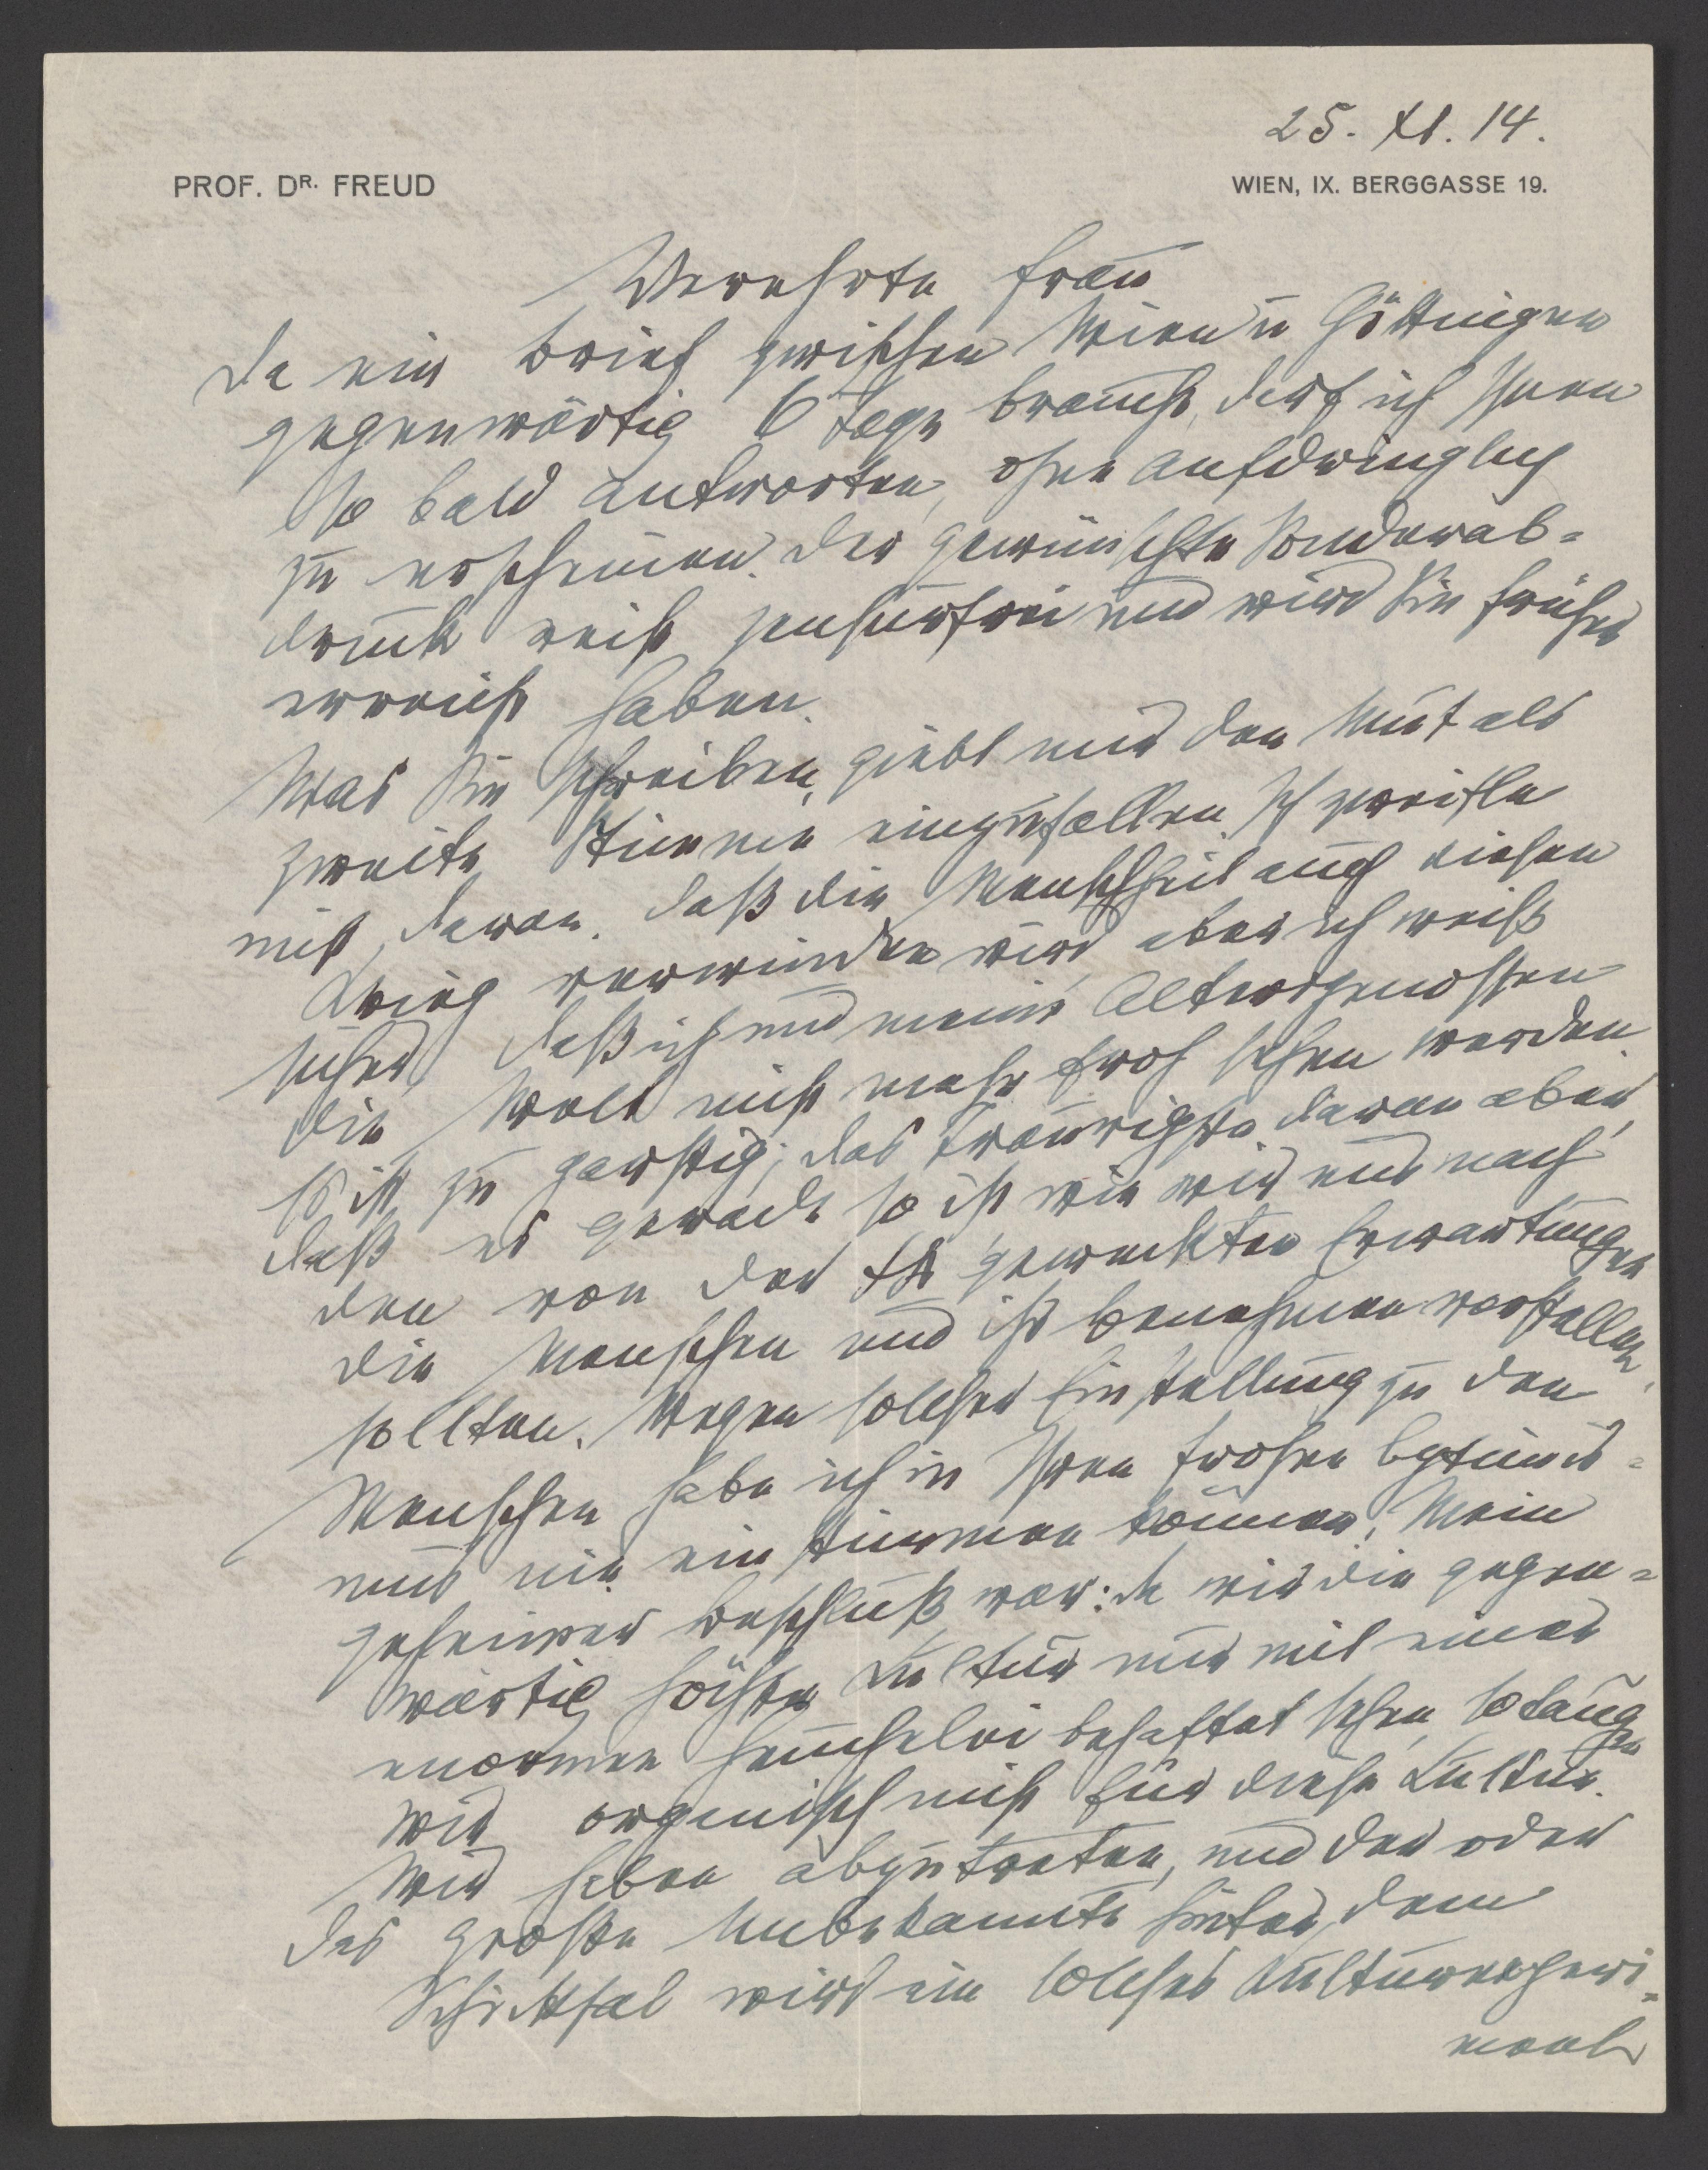 25. XI. 14.
PROF. DR. FREUD
WIEN, IX. BERGGASSE 19.
Verehrte Frau
Da ein Brief zwischen Wien u Göttingen
gegenwärtig 6 Tage braucht, darf ich Ihnen
so bald antworten, ohne aufdringlich
zu erscheinen. Der gewünschte Sonderab-
druck reist zensurfrei und wird Sie früher
erreicht haben.
Was Sie schreiben, giebt mir den Mut als
zweite Stimme einzufallen. Ich zweifle
nicht daran, daß die Menschheit auch diesen
Krieg verwinden wird, aber ich weiß
sicher, daß ich und meine Altersgenossen
die Welt nicht mehr froh sehen werden.
Es ist zu garstig; das Traurigste daran aber,
daß es gerade so ist wie wir uns nach
den von der ΨA geweckten Erwartungen
die Menschen und ihr Benehmen vorstellen
sollten. Wegen solcher Einstellung zu den
Menschen habe ich in Ihren frohen Optimis-
mus nie einstimmen können. Mein
geheimer Beschluß war: da wir die gegen-
wärtig höchste Kultur nur mit einer
enormen Heuchelei behaftet sehen, so taugen
wir organisch nicht für diese Kultur.
Wir haben abzutreten, und der oder
das große Unbekannte hinter dem
Schicksal wird ein solches Kulturexperi-
ment